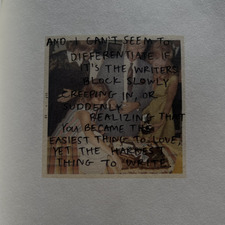 AND I CAN'T SEEM TO
DIFFERENTIATE IF
IT'S THE WRITERS
BLOCK SLOWLY
CREEPING IN, OR
SUDDENLY
REALIZING THAT
YOU BECAME THE
EASIEST THING TO LOVE,
YET THE HARDEST
THING TO WRITE.